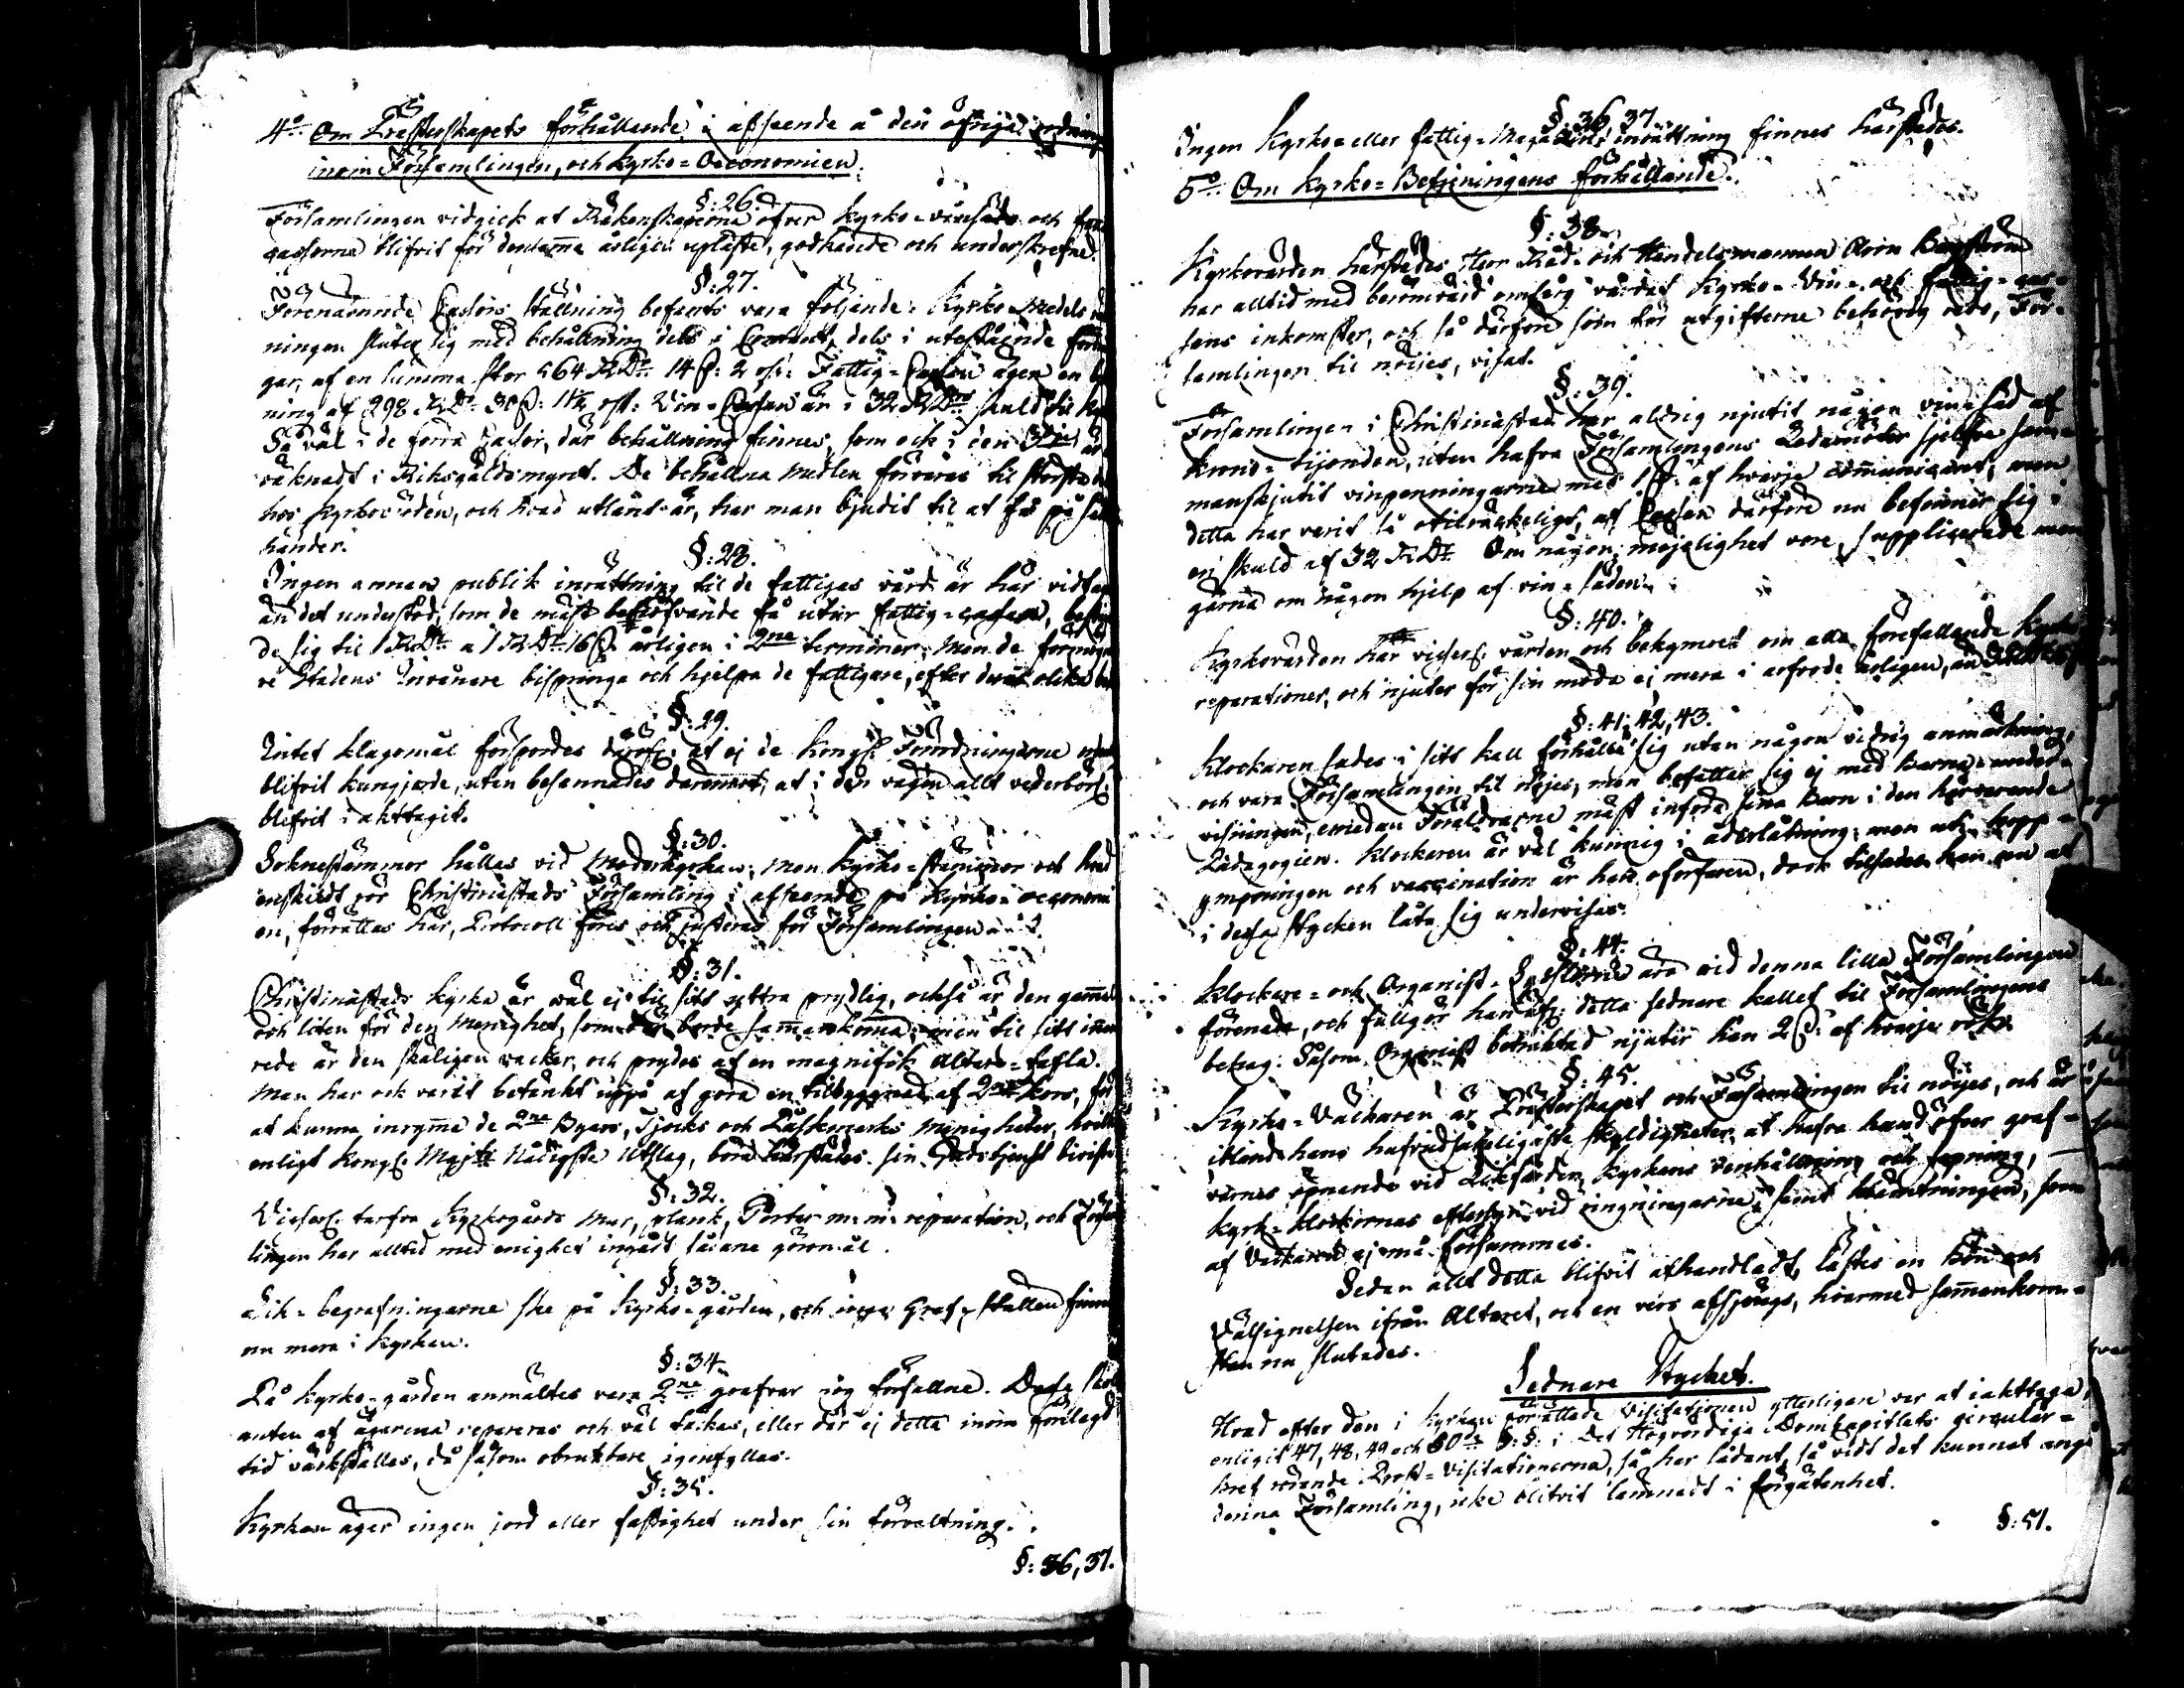 4:o Om Prästerskapets förhållande i afseende å den öfriga ordning
inom Församlingen, och Kyrko=Oeconomien.
§: 26.
Församlingen vidgick at Räkenskaperna öfver Kyrko= och
cassorna blifvit för densamma årligen upläste, godkände och underskrefne.
§: 27.
Förenämnde Cassors ställning befants vara följande: Kyrko=Medels
ningen sluter sig med behållning dels i Contant, dels i utestående
gar, af en summa stor 564 RD:r 14 ß: 2 rst: Fattig=Cassan äger en
ning af 298 RD:r 30 ß: rst: Vin=Cassan är i 32 RD:rs skuld til
Så väl i de förra Cassor, där behållning finnes, som ock i den är
räknadt i Riksgäldsmynt. De behållna medlen förvaras til största
hos Kyrkovärden, och hvad utlånt är, har man bjudit til at få på
händer.
§: 28.
Ingen annan publik inrättning til de fattigas vård är här
än det understöd, som de mäst behöfvande få utur fattig=cassan,
de sig til 1 RD:r a 1 RD:r 16 ß årligen i 2:ne terminer. Men de
re Stadens Invånare bispringa och hjelpa de fattigare, efter deras olika
§: 29.
Intet klagomål förspordes at ej de Kongl: Förordningarne
blifvit kungjorde, utan besannades däremot, at i den vägen allt vederbörl:
blifvit i akttagit.
§: 30.
Soknestämmor hålles vid Moderkyrkan; men Kyrko=stämmor och hvad
enskildt rör Christinæstads Församling i afseende på Kyrko=oeconomi
en, förrättas här, Protocoll föres och justeras för Församlingen
§: 31.
Christinæstads Kyrka är wäl ej til sitt yttra prydlig, också är den gam̄al
och liten för den Menighet, som där borde sam̄ankom̄a; men til sitt in̄an
rede är den skäligen vacker, och prydes af en magnifik Altars=tafla.
Man har ock varit betänkt uppå at göra en tilbyggnad af 2:ne Kors, för
at kunna inrym̄a de 2:ne Byars, Tjocks och Påskmarks Menigheter, hvilka
enligt Kongl: Maj:ts Nådigste Utslag, böra härstädes sin Gudstjenst
§: 32.
tarfva Kyrkogårds Mur, plank, Portar m: m: reparation, och
lingen har alltid med enighet ingått sådane göromål.
§: 33.
Lik=begrafningarne ske på Kyrko=gården, och inga Graf=ställen finnas
nu mera i Kyrkan.
§: 34.
På Kyrko=gården anmältes vara 2:ne grafvar nog förfallne. Desse skola
antin af ägarena repareras och väl täckas, eller där ej detta inom förelagd
tid värkställes, då såsom obruktbare igenfyllas.
§: 35.
Kyrkan äger ingen jord eller fastighet under sin förvaltning.
§: 36, 37.
§: 36, 37.
Ingen Kyrko= eller fattig=Magazins inrättning finnes härstädes.
5:o Om Kyrko=Betjeningens förhållande.
§: 38.
Kyrkovärden härstädes Herr Råd= och Handelsmannen
har alltid med berömvärd omsorg vårdat Kyrko=Vin=och fattig=cas=
sans inkomster, och så därföre som för utgifterne behörig redo, För=
samlingen til nöijes, visat.
§: 39.
Församlingen i Christinæstad har aldrig njutit någon vin=säd af
krono=tijonden, utan hafva Församlingens Ledamöter sjelfve sam=
manskjutit vinpenningarne med 1 ß: af hvarje communicant, men
detta har varit så otilräckeligt, at Cassan därföre nu befinner sig i
en skuld af 32 RD:r Om någon möjelighet vore, supplicerade man
gärna om någon hjelp af vin=säden.
§: 40.
Kyrkovärden har vården och bekymret om alla förefallande Kyrko
reparationer, och njuter för sin möda ej mera i arfvode årligen, än
§: 41, 42, 43.
Klockaren sades i sitt kall förhålla sig utan någon vidrig anmärkning,
och vara Församlingen til nöjes, men befattar sig ej med Barna=under=
visningen, emedan Föräldrarne mäst införa sina Barn i den härvarande
Pædagogien. Klockaren är väl kunnig i åderlåtning: men uti kopp=
ympningen och vaccination är han oförfaren, dock tilsades han nu at
i dessa stycken låta sig undervisas.
§: 44.
Klockare= och Organist=Syslorna äro vid denna lilla Församlingen
förenade, och fullgör han detta sednare kallet til Församlingens
behag. Såsom Organist betraktad njuter han 2 ß: af hvarje rök.
§: 45.
Kyrko=Väcktaren är Prästerskapet och Församlingen til nöijes, och är
ibland hans hufvudsakeligaste skyldigheter at hafva hand öfver graf=
varnes öpnande vid Likfärden, Kyrkans renhållning och sopning,
kyrk=klockornas eftersyn vid ringningarne, samt som
af Vecktaren ej må försummas.
Sedan allt detta blifvit afhandladt, lästes en bön och
Välsignelsen ifrån Altaret, och en vers afsjöngs, hvarmed sam̄ankom=
sten nu slutades.
Sednare Stycket.
Hvad efter den i Kyrkan förrättade Visitationen ytterligare var at iakttaga,
enligit 47, 48, 49 och 50:de §:§: i Det Högvördiga Domkapitlets circulär=
bref rörande Prost=Visitationerna, så har sådant, så vidt det kunnat angå
denna Församling, icke blifvit lämnadt i förgätenhet.
§: 51.